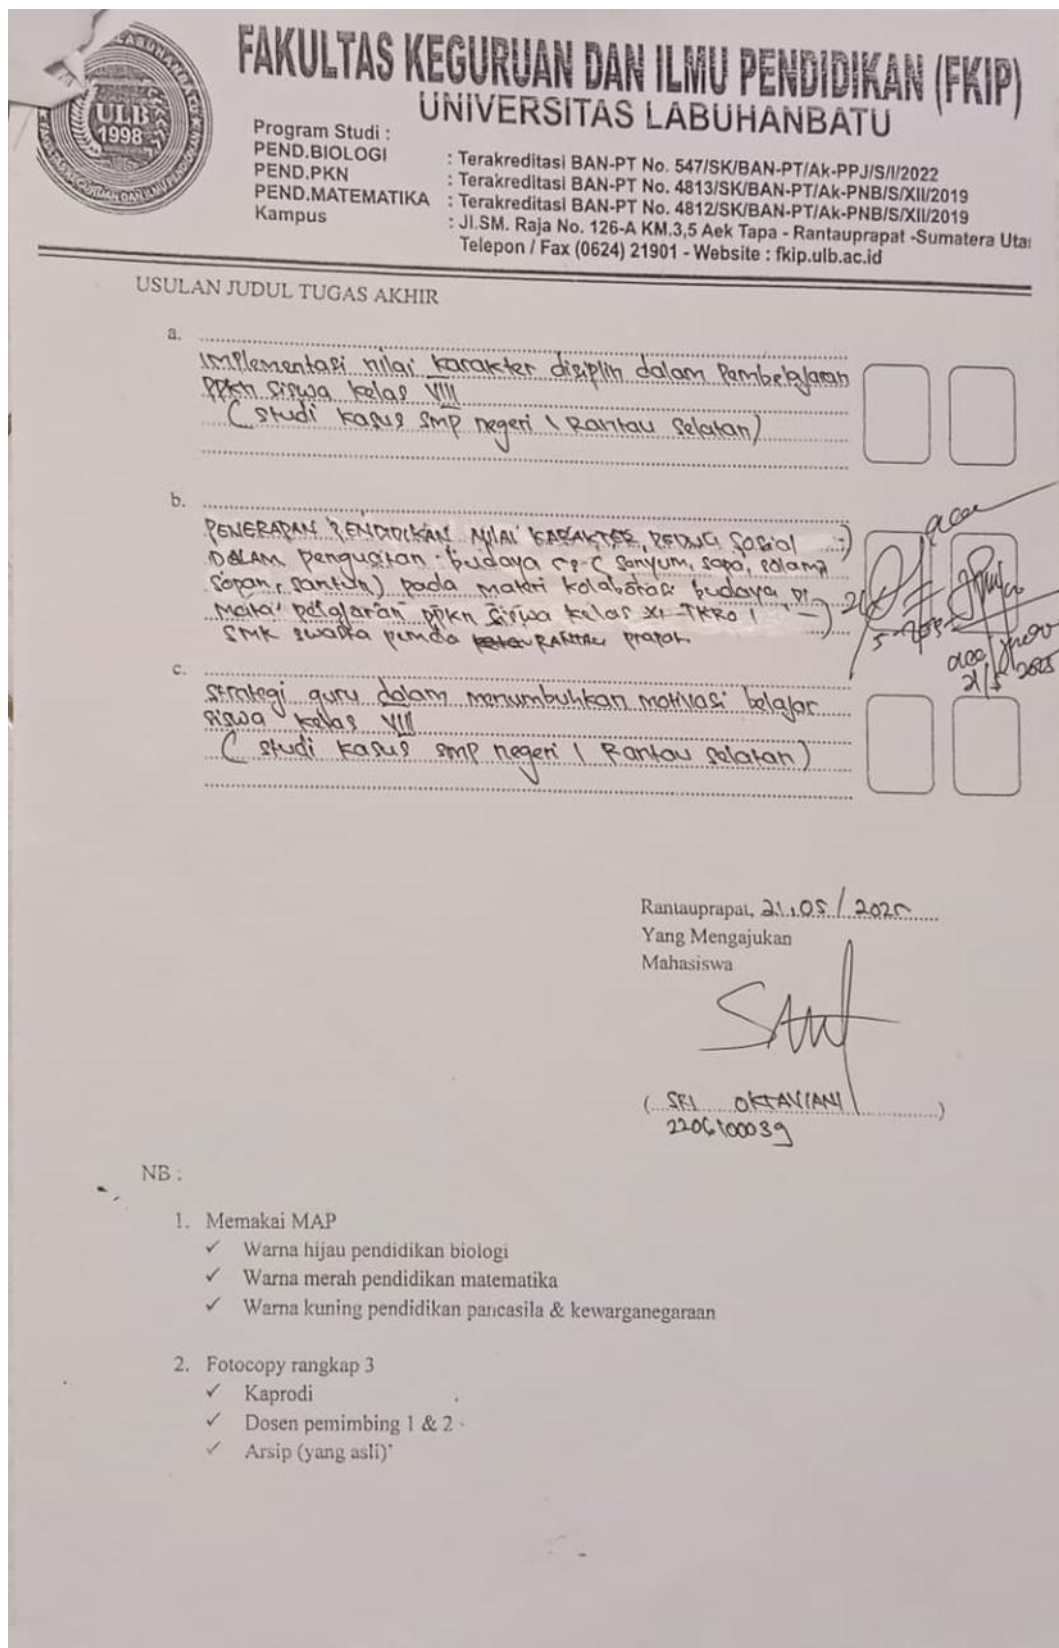 FAKULTAS KEGURUAN DAN ILMU PENDIDIKAN (FKIP)
UNIVERSITAS LABUHANBATU
ULB
1998
Program Studi :
PEND.BIOLOGI : Terakreditasi BAN-PT No. 547/SK/BAN-PT/Ak-PPJ/S/I/2022
PEND.PKN : Terakreditasi BAN-PT No. 4813/SK/BAN-PT/Ak-PNB/S/XII/2019
PEND.MATEMATIKA : Terakreditasi BAN-PT No. 4812/SK/BAN-PT/Ak-PNB/S/XII/2019
Kampus : Jl.SM. Raja No. 126-A KM.3,5 Aek Tapa - Rantauprapat -Sumatera Utar
Telepon / Fax (0624) 21901 - Website : fkip.ulb.ac.id
USULAN JUDUL TUGAS AKHIR
a.
Implementasi nilai karakter disiplin dalam Pembelajaran
PPKn siswa kelas VIII
( studi kasus smp negeri 1 Rantau selatan)
b.
PENERAPAN PENDIDIKAN NILAI KARAKTER PEDULI SOSIAL
DALAM penguatan budaya (senyum, sapa, salam,
sopan, santun) pada materi kolaborasi budaya Di
mata pelajaran ppkn siswa kelas XI TKRO 1
SMK swasta pemda RANTAU prapat
acc
acc
21/5 2025
c.
strategi guru dalam menumbuhkan motivasi belajar
siswa kelas VIII
( studi kasus smp negeri 1 Rantau selatan)
Rantauprapat, 21,05/2025
Yang Mengajukan
Mahasiswa
( SRI OKTAVIANI )
2206100039
NB :
1. Memakai MAP
✓ Warna hijau pendidikan biologi
✓ Warna merah pendidikan matematika
✓ Warna kuning pendidikan pancasila & kewarganegaraan
2. Fotocopy rangkap 3
✓ Kaprodi
✓ Dosen pemimbing 1 & 2
✓ Arsip (yang asli)*